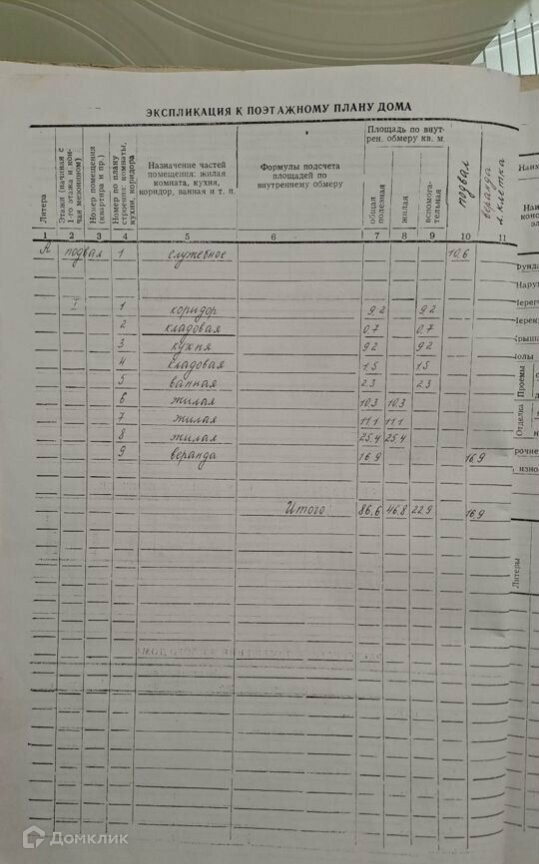 ЭКСПЛИКАЦИЯ К ПОЭТАЖНОМУ ПЛАНУ ДОМА
Литера
Этажи (начиная с 1-го этажа и кончая мезонином)
Номер помещения (квартира и пр.)
Номер по плану строения: комнаты, кухни, коридора
Назначение частей помещения: жилая комната, кухня, коридор, ванная и т. п.
Формулы подсчета площадей по внутреннему обмеру
Площадь по внутрен. обмеру кв. м
общая полезная
жилая
вспомогательная
подвал
веранда л. клетка
1 2 3 4 5 6 7 8 9 10 11
А подвал 1 служебное 10,6
I 1 коридор 9,2 9,2
2 кладовая 0,7 0,7
3 кухня 9,2 9,2
4 кладовая 1,5 1,5
5 ванная 2,3 2,3
6 жилая 10,3 10,3
7 жилая 11,1 11,1
8 жилая 25,4 25,4
9 веранда 16,9 16,9
Итого 86,6 46,8 22,9 16,9
Проемы
Отделка
Литеры
Домклик